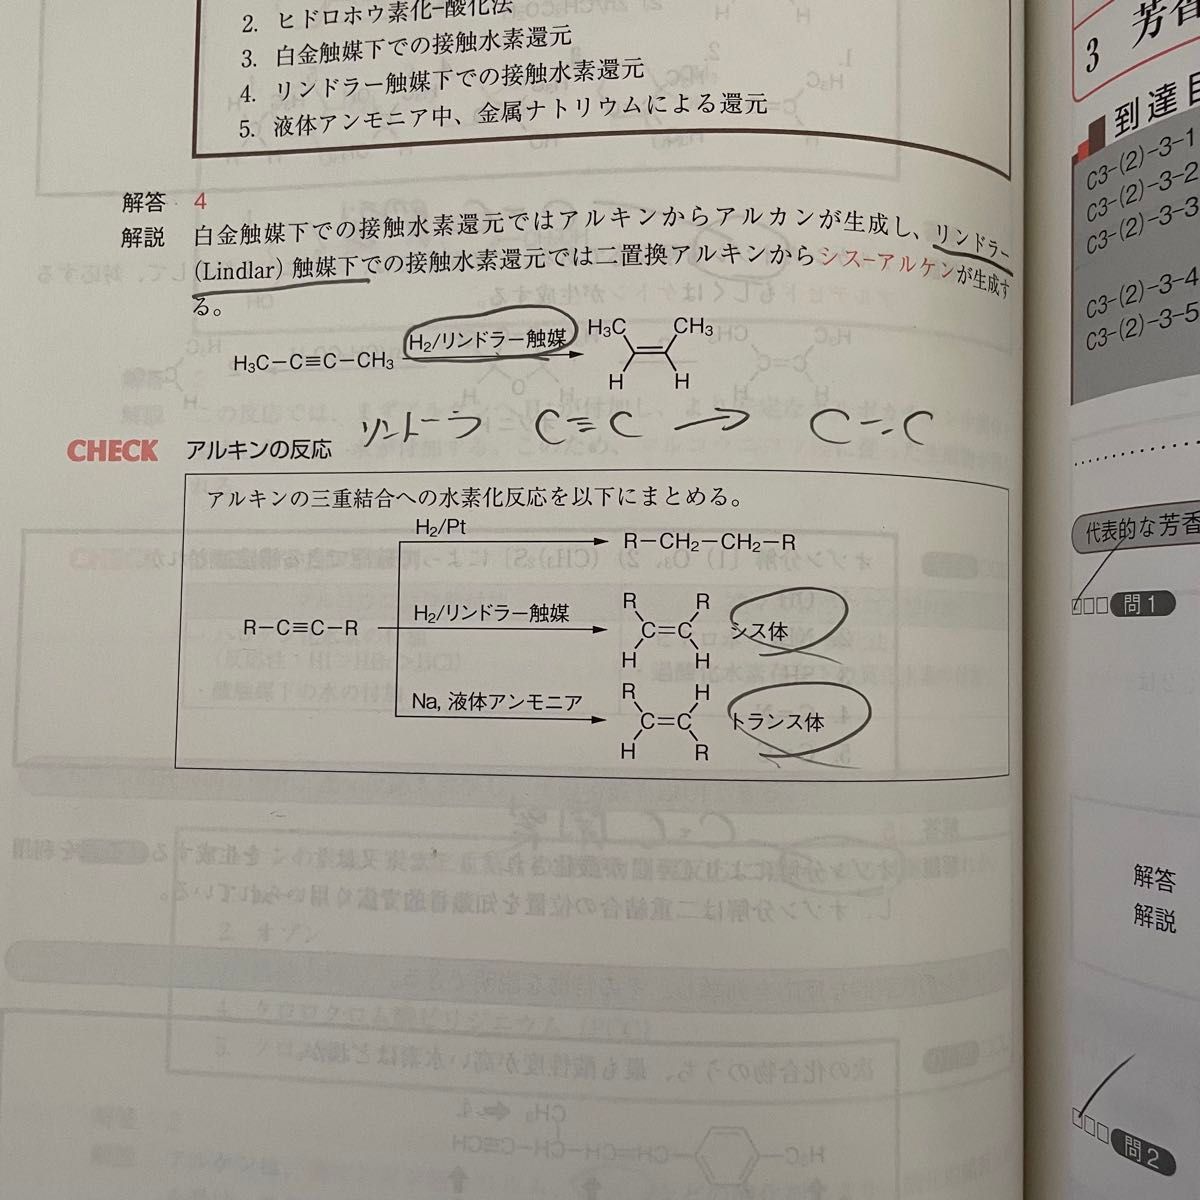 2. ヒドロホウ素化-酸化法
3. 白金触媒下での接触水素還元
4. リンドラー触媒下での接触水素還元
5. 液体アンモニア中、金属ナトリウムによる還元
解答 4
解説 白金触媒下での接触水素還元ではアルキンからアルカンが生成し、リンドラー
(Lindlar) 触媒下での接触水素還元では二置換アルキンからシス-アルケンが生成す
る。
H₃C-C≡C-CH₃ H₂/リンドラー触媒 H₃C CH₃
H H
リンドーラ C≡C → C=C
CHECK アルキンの反応
アルキンの三重結合への水素化反応を以下にまとめる。
H₂/Pt
R-CH₂-CH₂-R
R-C≡C-R
H₂/リンドラー触媒
R R
C=C
H H
シス体
Na, 液体アンモニア
R H
C=C
H R
トランス体
3 芳香
到達目
C3-(2)-3-1
C3-(2)-3-2
C3-(2)-3-3
C3-(2)-3-4
C3-(2)-3-5
代表的な芳香
□□□ 問1
解答
解説
□□□ 問2